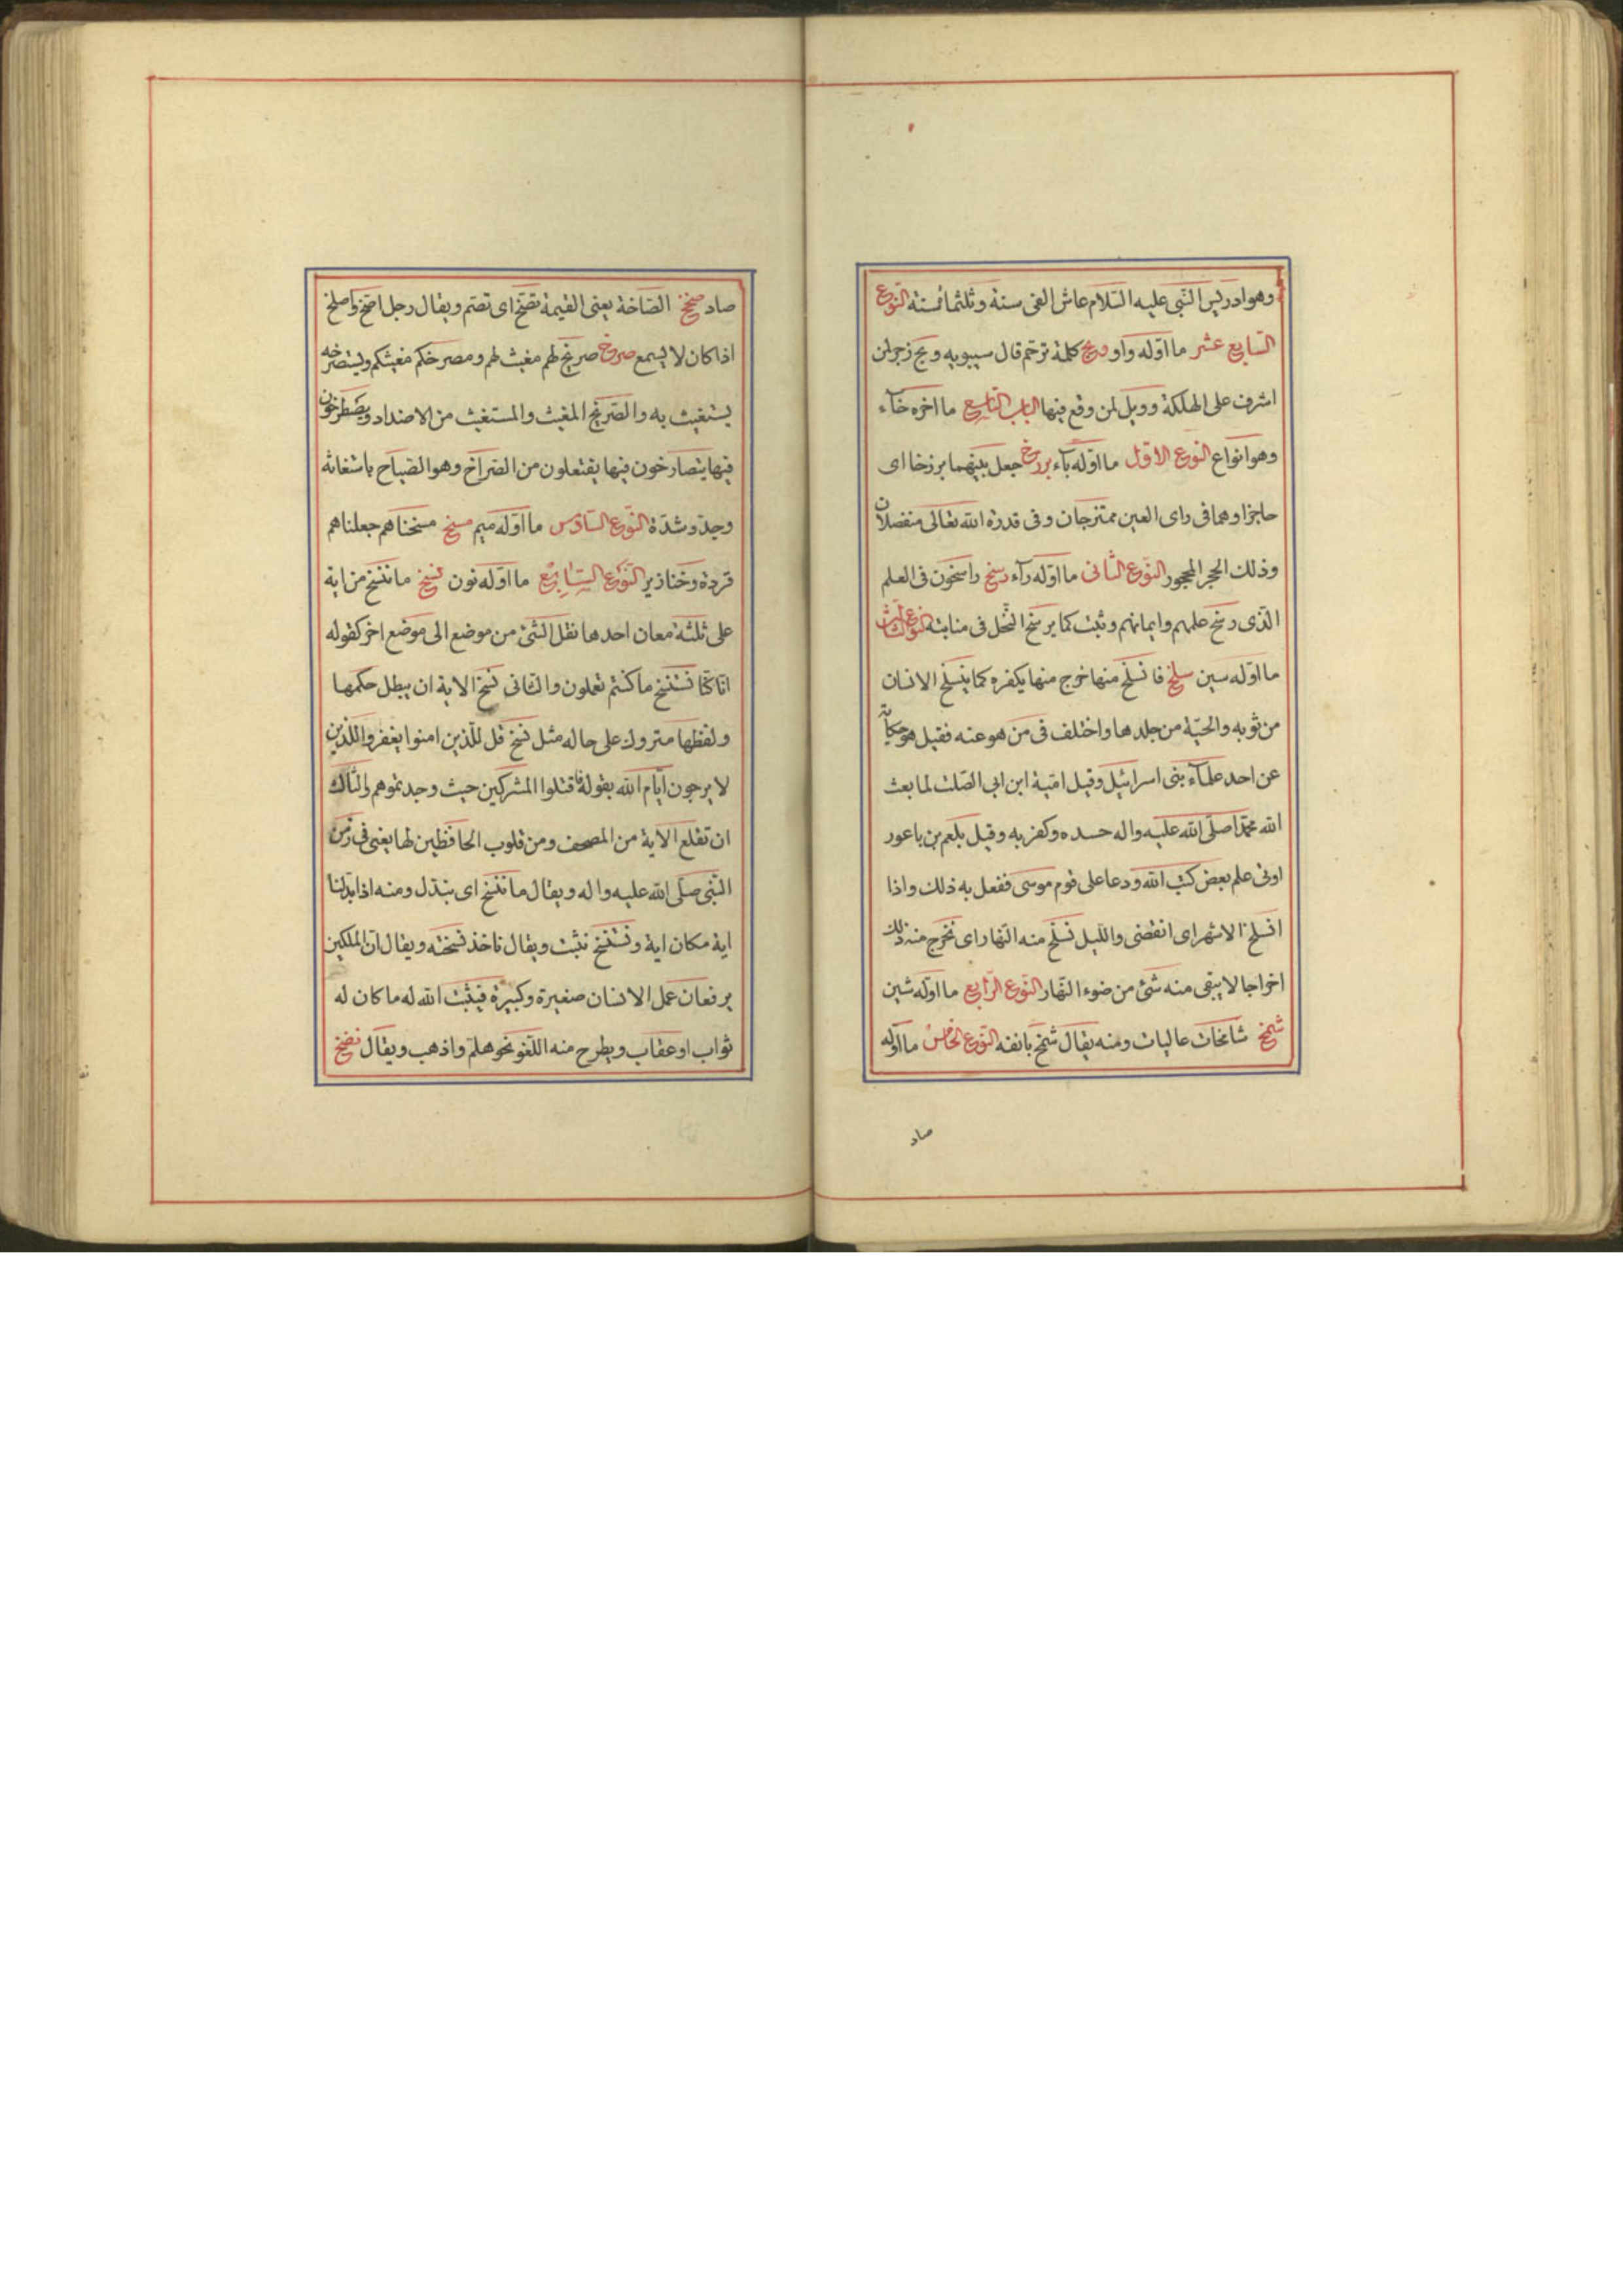 وهو ادريس النّبى عليه السّلام عاش الفى سنة وثلثمائة سنة النّوع
السّابع عشر ما اوّله واو ويح كلمة ترحّم قال سيبويه ويح زجر لمن
اشرف على الهلكة وويل لمن وقع فيها الباب التاسع ما اخره خآء
وهو انواع النّوع الاوّل ما اوّله بآء برزخ جعل بينهما برزخا اى
حاجزا وهما فى راى العين ممتزجان وفى قدرة الله تعالى منفصلان
وذلك الحجر المحجور النّوع الثّانى ما اوّله رآء رسخ راسخون فى العلم
الّذى رسخ علمهم وايمانهم وثبت كما يرسخ النّخل فى منابته النّوع الثّالث
ما اوّله سين سلخ فانسلخ منها خرج منها بكفره كما ينسلخ الانسان
من ثوبه والحيّة من جلدها واختلف فى من هو عنه فقيل هو حكاية
عن احد علمآء بنى اسرائيل وقيل اميّة ابن ابى الصّلت لما بعث
الله محمّدا صلّى الله عليه واله حسده وكفر به وقيل بلعم بن باعور
اوتى علم بعض كتب الله ودعا على قوم موسى ففعل به ذلك واذا
انسلخ الاشهر اى انقضى واللّيل نسلخ منه النّهار اى نخرج منه ذلك
اخراجا لا يبقى منه شئ من ضوء النّهار النّوع الرّابع ما اوّله شين
شمخ شامخات عاليات ومنه يقال شمخ بانفه النّوع الخامس ما اوّله
صاد
صاد صخخ الصّاخّة يعنى القيمة تصخّ اى تصمّ ويقال رجل اصخّ واصلخ
اذا كان لا يسمع صرخ صريخ لهم مغيث لهم ومصرخكم مغيثكم ويستصرخه
يستغيث به والصّريخ المغيث والمستغيث من الاضداد ويصطرخون
فيها يتصارخون فيها يفتعلون من الصّراخ وهو الصّياح باستغاثة
وجدّ وشدّة النّوع السّادس ما اوّله ميم مسخ مسخناهم جعلناهم
قردة وخنازير النّوع السّابع ما اوّله نون نسخ ما ننسخ من اية
على ثلثة معان احدها نقل الشّئ من موضع الى موضع اخر كقوله
انّا كنّا نستنسخ ما كنتم تعلون والثّانى نسخ الاية ان يبطل حكمها
ولفظها متروك على حاله مثل نسخ قل للّذين امنوا يغفروا للّذين
لا يرجون ايّام الله بقوله فاقتلوا المشركين حيث وجدتموهم والثّالث
ان تقلع الاية من المصحف ومن قلوب الحافظين لها يعنى فى زمن
النّبى صلّى الله عليه واله ويقال ما ننسخ اى نبدّل ومنه اذا بدّلنا
اية مكان اية ونستنسخ نثبت ويقال ناخذ نسخته ويقال انّ الملكين
يرفعان عمل الانسان صغيرة وكبيرة فيثبت الله له ما كان له
ثواب او عقاب ويطرح منه اللّغو نحو هلمّ واذهب ويقال نضخ